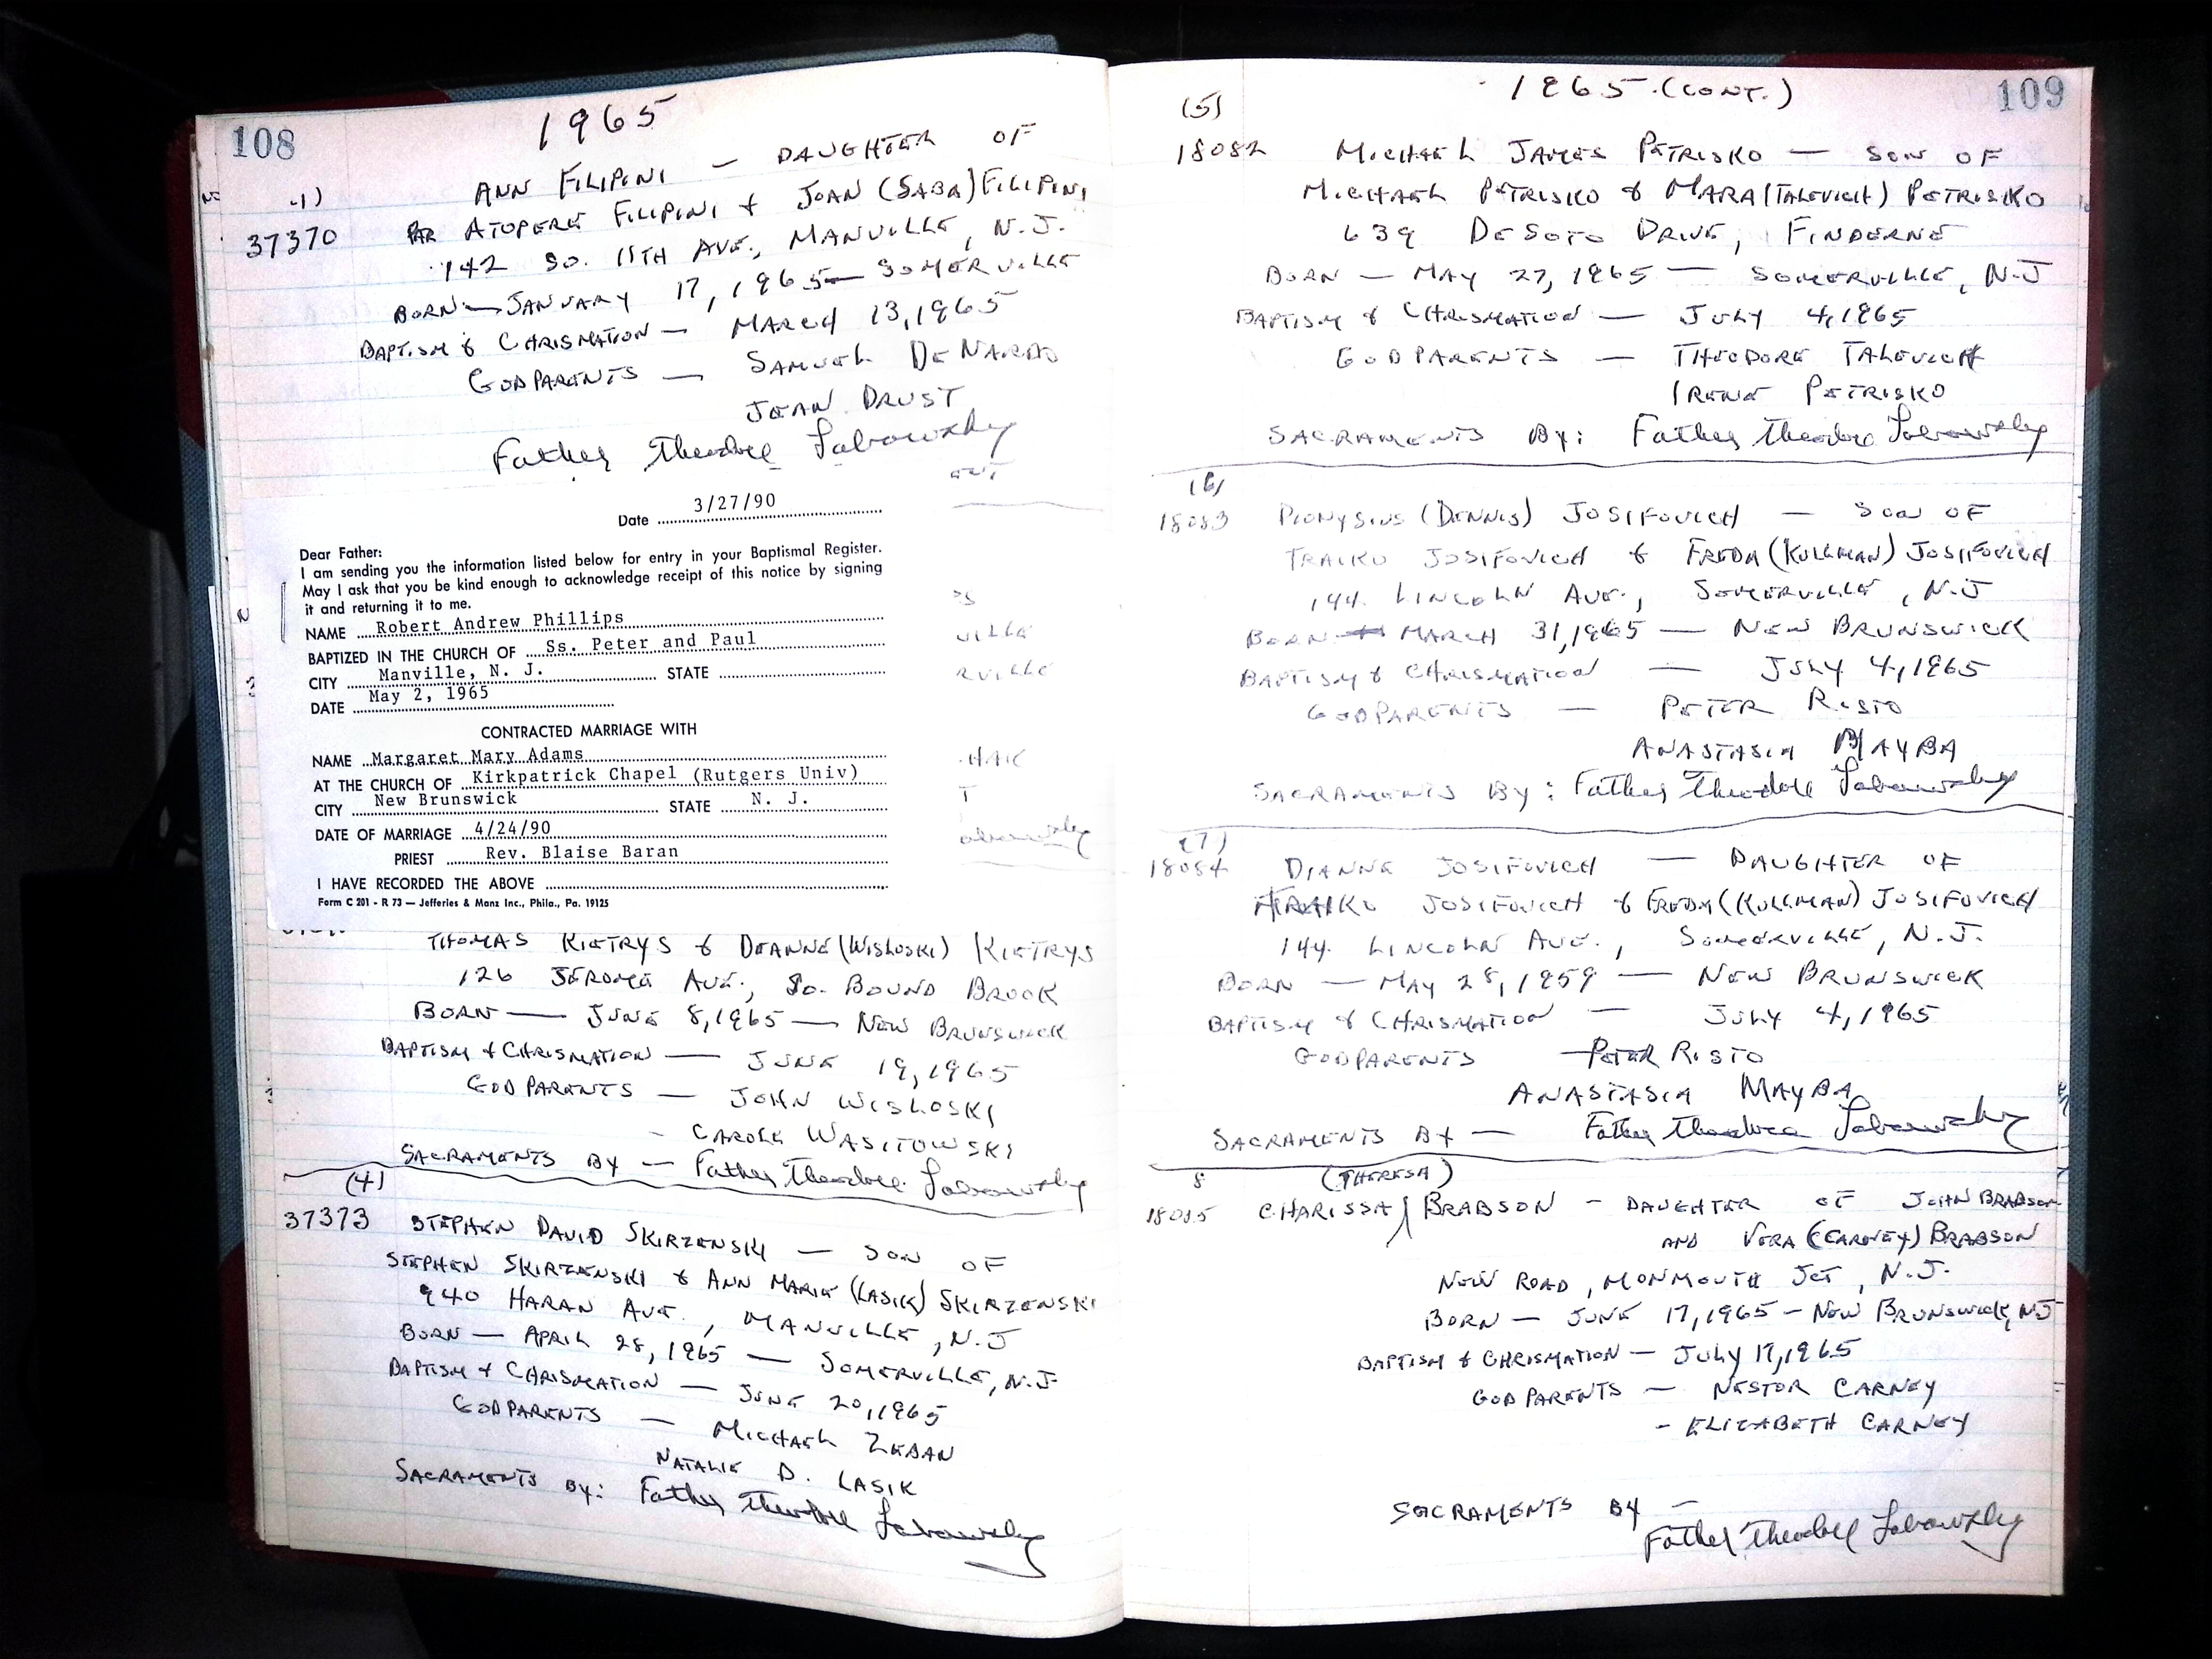 108
1965
1)
37370
ANN FILIPINI — DAUGHTER OF
ATOPERE FILIPINI & JOAN (SABA) FILIPINI
142 SO. 11TH AVE., MANVILLE, N.J.
BORN — JANUARY 17, 1965 — SOMERVILLE
BAPTISM & CHRISMATION — MARCH 13, 1965
GODPARENTS — SAMUEL DENARDO
JEAN DRUST
Father Theodore Labowsky
Date 3/27/90
Dear Father:
I am sending you the information listed below for entry in your Baptismal Register.
May I ask that you be kind enough to acknowledge receipt of this notice by signing
it and returning it to me.
NAME Robert Andrew Phillips
BAPTIZED IN THE CHURCH OF Ss. Peter and Paul
CITY Manville, N. J. STATE
DATE May 2, 1965
CONTRACTED MARRIAGE WITH
NAME Margaret Mary Adams
AT THE CHURCH OF Kirkpatrick Chapel (Rutgers Univ)
CITY New Brunswick STATE N. J.
DATE OF MARRIAGE 4/24/90
PRIEST Rev. Blaise Baran
I HAVE RECORDED THE ABOVE
Form C 201 - R 73 — Jefferies & Manz Inc., Phila., Pa. 19125
VILLE
RVILLE
THOMAS KIETRYS & DEANNE (WISLOSKI) KIETRYS
126 JEROME AVE., SO. BOUND BROOK
BORN — JUNE 8, 1965 — NEW BRUNSWICK
BAPTISM & CHRISMATION — JUNE 19, 1965
GODPARENTS — JOHN WISLOSKI
- CAROLE WASITOWSKI
SACRAMENTS BY — Father Theodore Labowsky
(4)
37373
STEPHEN DAVID SKIRZENSKI — SON OF
STEPHEN SKIRZENSKI & ANN MARIE (LASIK) SKIRZENSKI
940 HARAN AVE., MANVILLE, N.J
BORN — APRIL 28, 1965 — SOMERVILLE, N.J.
BAPTISM & CHRISMATION — JUNE 20, 1965
GODPARENTS — MICHAEL ZEBAN
NATALIE D. LASIK
SACRAMENTS BY: Father Theodore Labowsky
109
1965 (CONT.)
(5)
18082
MICHAEL JAMES PETRISKO — SON OF
MICHAEL PETRISKO & MARA (TALEVICH) PETRISKO
639 DESOTO DRIVE, FINDERNE
BORN — MAY 27, 1965 — SOMERVILLE, N.J
BAPTISM & CHRISMATION — JULY 4, 1965
GODPARENTS — THEODORE TALEVICH
IRENE PETRISKO
SACRAMENTS BY: Father Theodore Labowsky
(6)
18083
DIONYSIUS (DENNIS) JOSIFOVICH — SON OF
TRAIKO JOSIFOVICH & FREDA (KULLMAN) JOSIFOVICH
144 LINCOLN AVE., SOMERVILLE, N.J
BORN — MARCH 31, 1965 — NEW BRUNSWICK
BAPTISM & CHRISMATION — JULY 4, 1965
GODPARENTS — PETER RISTO
ANASTASIA MAYBA
SACRAMENTS BY: Father Theodore Labowsky
(7)
18084
DIANNE JOSIFOVICH — DAUGHTER OF
TRAIKO JOSIFOVICH & FREDA (KULLMAN) JOSIFOVICH
144 LINCOLN AVE., SOMERVILLE, N.J.
BORN — MAY 28, 1959 — NEW BRUNSWICK
BAPTISM & CHRISMATION — JULY 4, 1965
GODPARENTS — PETER RISTO
ANASTASIA MAYBA
SACRAMENTS BY — Father Theodore Labowsky
8
18085
(THERESA)
CHARISSA BRABSON - DAUGHTER OF JOHN BRABSON
AND VERA (CARNEY) BRABSON
NEW ROAD, MONMOUTH JCT, N.J.
BORN — JUNE 17, 1965 - NEW BRUNSWICK, NJ
BAPTISM & CHRISMATION — JULY 17, 1965
GODPARENTS — NESTOR CARNEY
- ELIZABETH CARNEY
SACRAMENTS BY —
Father Theodore Labowsky